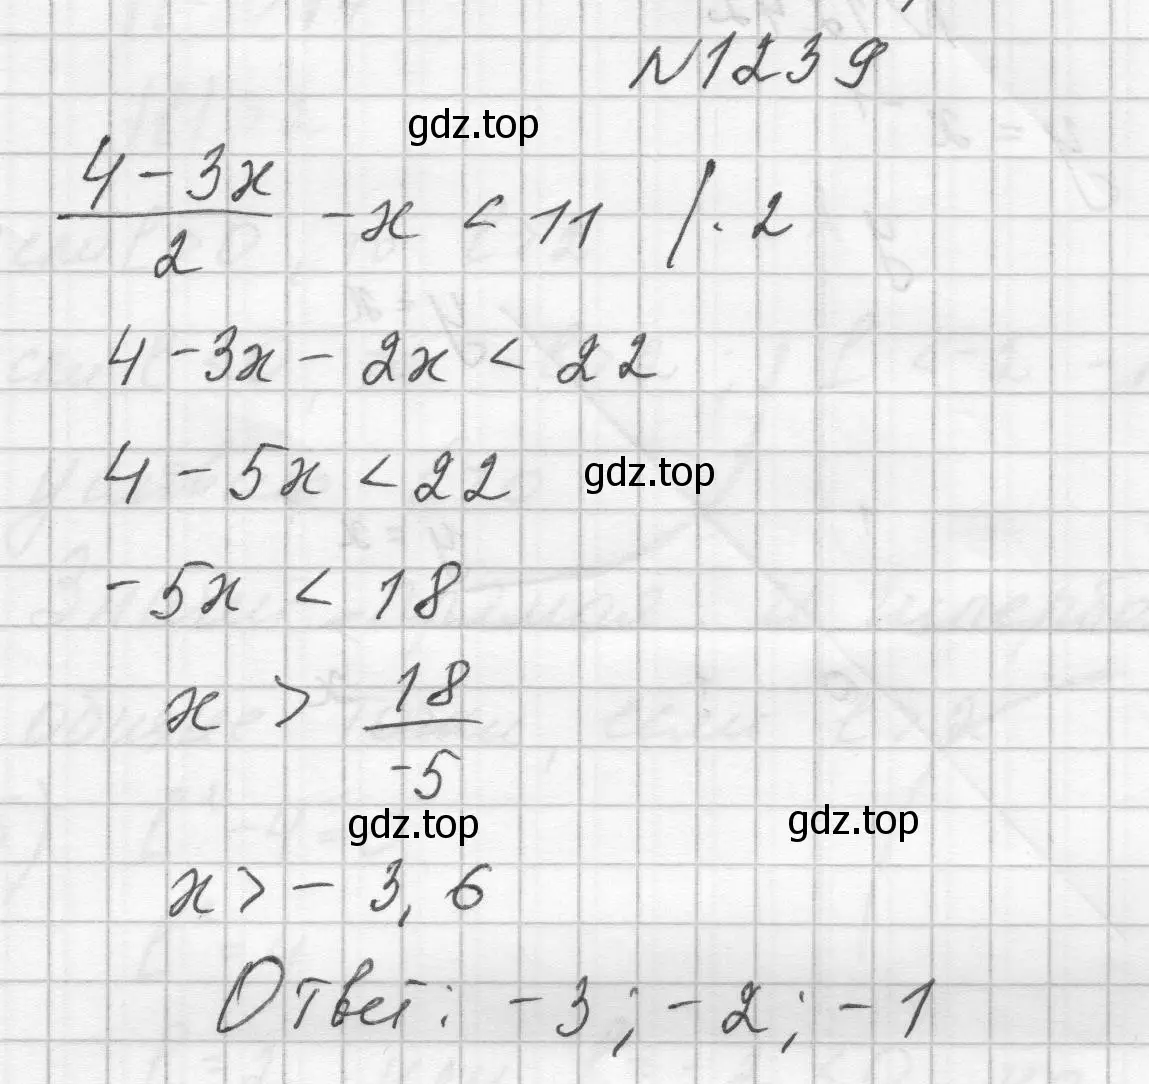 N1239
gdz.top
4-3x
─── -x < 11 /·2
2
4-3x-2x<22
4-5x<22 gdz.top
-5x < 18
x > 18/-5
gdz.top gdz.top
x>-3,6
Ответ: -3; -2; -1